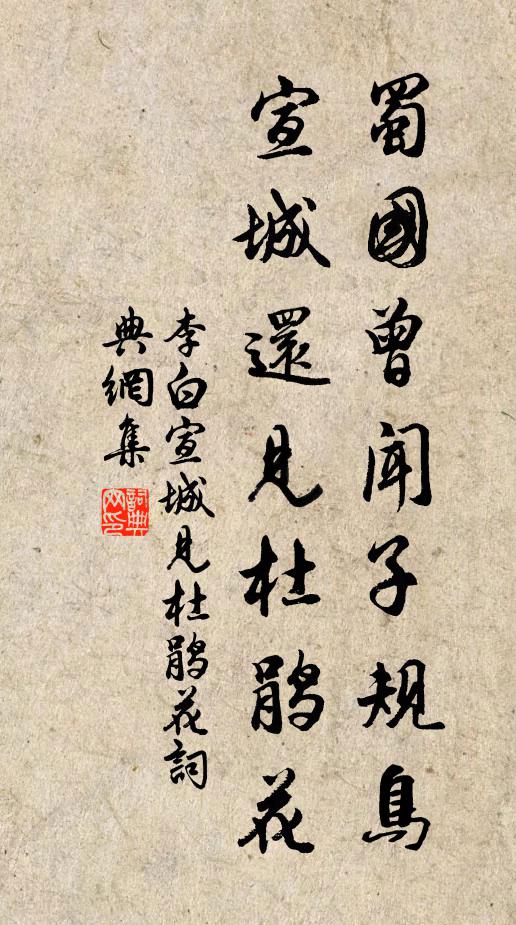 蜀國曾聞子規鳥
宣城還見杜鵑花
李白宣城見杜鵑花詞
典網集
詞典網印